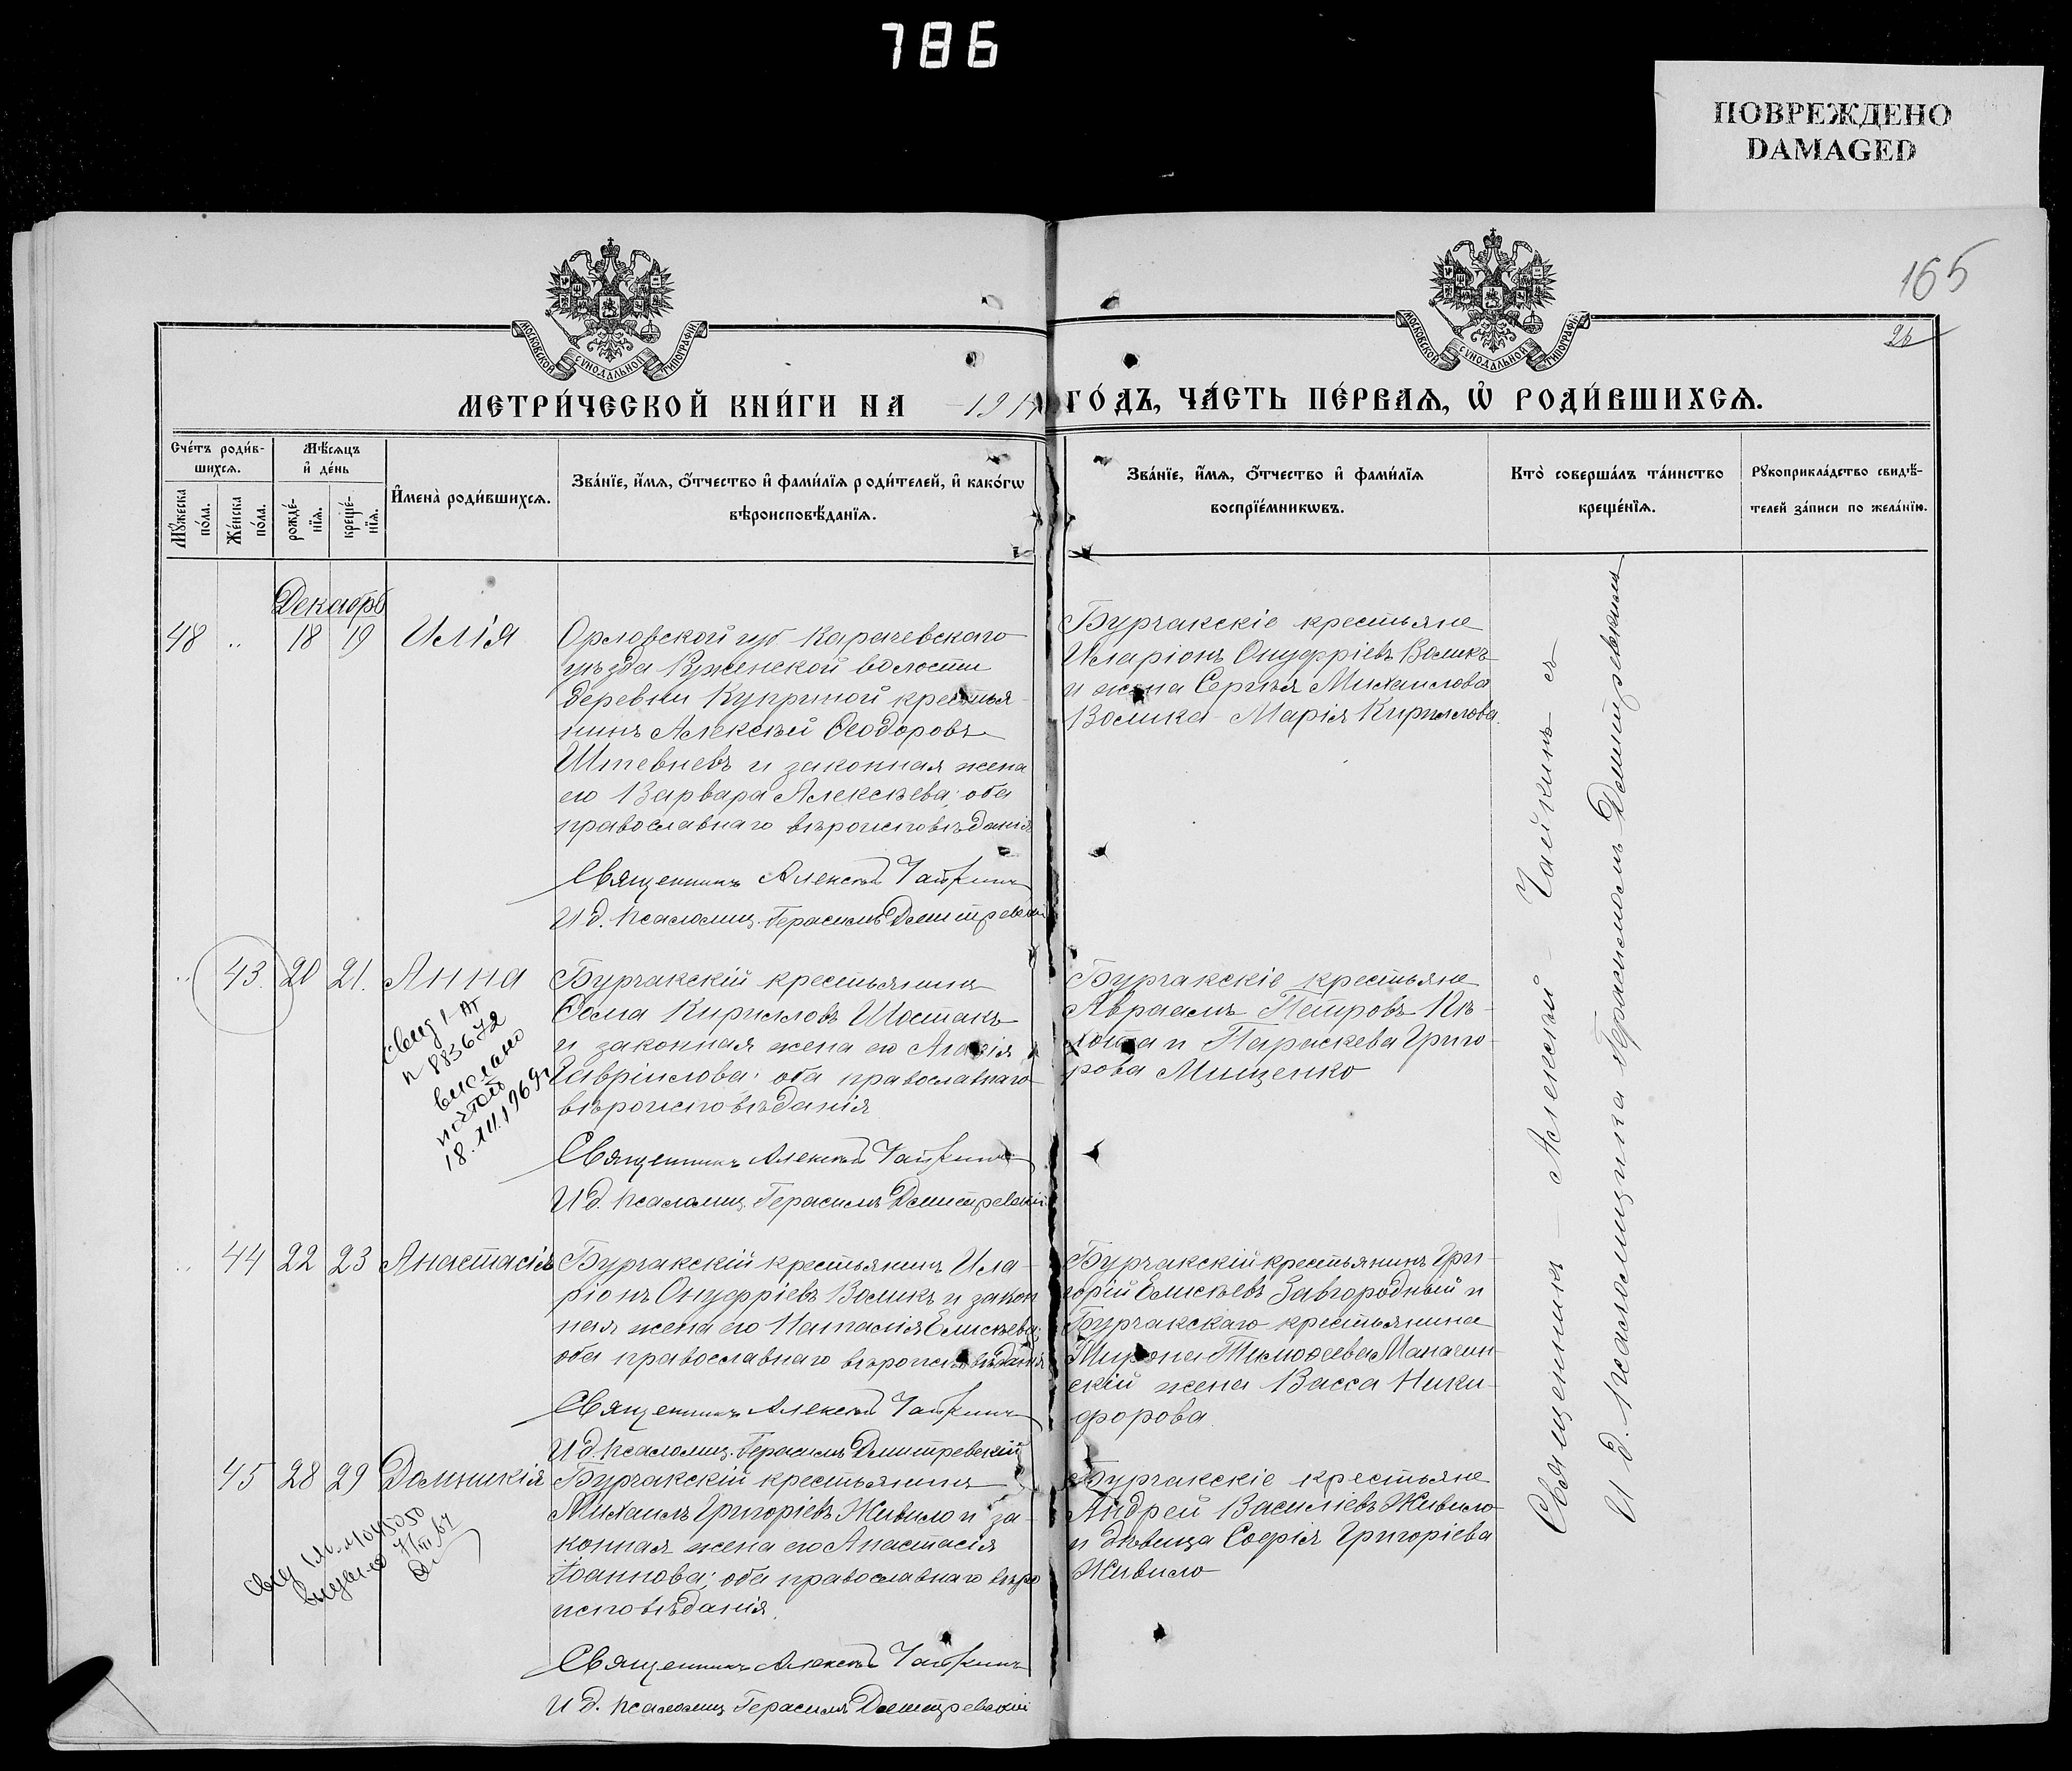 786
ПОВРЕЖДЕНО
DAMAGED
165
26
МОСКОВСКОЙ СУНОДАЛЬНОЙ ТИПОГРАФІИ
МОСКОВСКОЙ СУНОДАЛЬНОЙ ТИПОГРАФІИ
МЕТРИ́ЧЕСКОЙ КНИ́ГИ НА 1914 ГО́ДЪ, ЧА́СТЬ ПЕ́РВАѦ, Ѡ РОДИ́ВШИХСѦ.
Сче́тъ роди́в-
шихсѧ.
Мꙋ́жеска
по́ла.
Же́нска
по́ла.
Мѣ́сѧцъ
и҆ де́нь
рожде́-
нїѧ.
креще́-
нїѧ.
И҆мена̀ роди́вшихсѧ.
Зва́нїе, и҆́мѧ, ѻ҆́тчество и҆ фами́лїѧ роди́телей, и҆ како́гѡ
вѣроисповѣ́данїѧ.
Зва́нїе, и҆́мѧ, ѻ҆́тчество и҆ фами́лїѧ
воспрїе́мникѡвъ.
Кто̀ соверша́лъ та́инство
креще́нїѧ.
Рꙋкоприкла́дство свидѣ́-
телей за́писи по жела́нїю.
Декабрь
48 " 18 19 Илія
Орловской губ. Карачевскаго
уѣзда Руженской волости
деревни Куприной крестья-
нинъ Алексѣй Ѳеодоровъ
Штевневъ и законная жена
его Варвара Алексѣева; оба
православнаго вѣроисповѣданія
Священникъ Алексѣй Чайкинъ
И д. псаломщ. Герасимъ Дмитревскій
Бурчакскіе крестьяне
Иларіонъ Онуфріевъ Воликъ
и жена Сергѣя Михаилова
Волика Марія Кириллова.
" 43. 20 21. Анна
Бурчакскій крестьянинъ
Ѳома Кирилловъ Шостакъ
и законная жена его Агафія
Гавріилова; оба православнаго
вѣроисповѣданія
Священникъ Алексѣй Чайкинъ
И д. псаломщ. Герасимъ Дмитревскій
Бурчакскіе крестьяне
Авраамъ Петровъ Пѣ-
хота и Параскева Григо-
рова Мищенко
Свид 1-АП
n 883672
выслано
почтой
18.XII.1969г
" 44 22 23 Анастасія
Бурчакскій крестьянинъ Ила-
ріонъ Онуфріевъ Воликъ и закон
ная жена его Наталія Елисѣева;
оба православнаго вѣроисповѣданія
Священникъ Алексѣй Чайкинъ
И д. псаломщ. Герасимъ Дмитревскій
Бурчакскій крестьянинъ Гри-
горій Елисѣевъ Завгородный и
Бурчакскаго крестьянина
Мирона Тимоѳеева Маначин-
скій жена Васса Ники-
форова.
45 28 29 Домникія
Бурчакскій крестьянинъ
Михаилъ Григоріевъ Живило и за-
конная жена его Анастасія
Іоаннова; оба православнаго вѣро
исповѣданія.
Священникъ Алексѣй Чайкинъ
И д. псаломщ Герасимъ Дмитревскій
Бурчакскіе крестьяне
Андрей Василіевъ Живило
и дѣвица Софія Григоріева
Живило
Священникъ — Алексѣй — Чайкинъ съ
И д. псаломщика Герасимомъ Дмитревскимъ